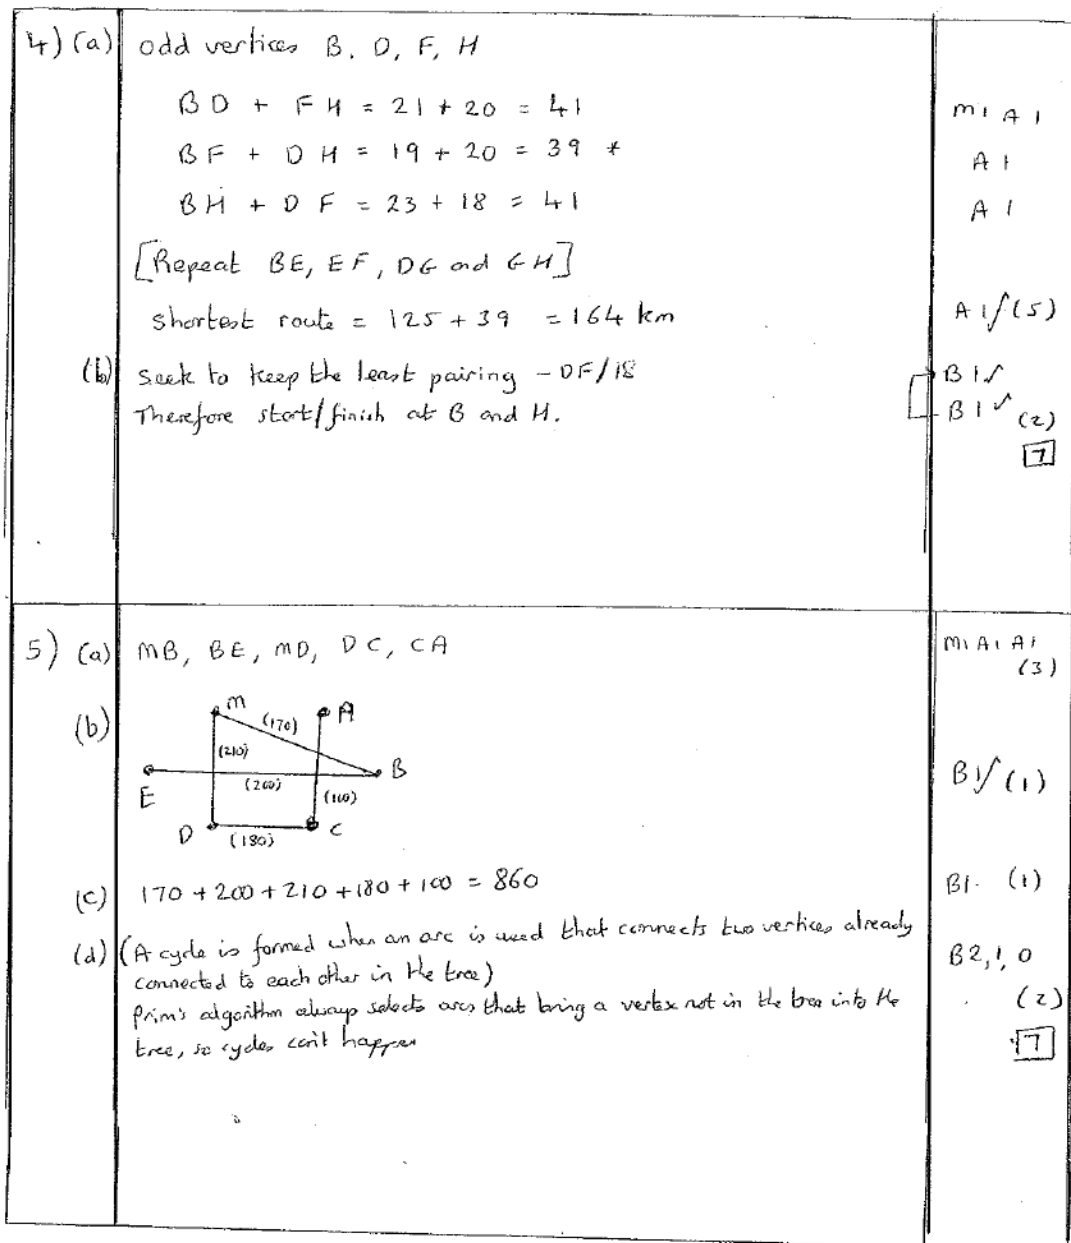 4) (a) odd vertices B, D, F, H
BD + FH = 21 + 20 = 41 M1 A1
BF + DH = 19 + 20 = 39 * A1
BH + DF = 23 + 18 = 41 A1
[Repeat BE, EF, DG and GH]
Shortest route = 125 + 39 = 164 km A1√ (5)
(b) Seek to keep the least pairing – DF/18 B1√
Therefore start/finish at B and H. B1√ (2)
7
5) (a) MB, BE, MD, DC, CA M1 A1 A1
(3)
(b) M (170) A
(210)
B
E (200) (100) B1√ (1)
D (180) C
(c) 170 + 200 + 210 + 180 + 100 = 860 B1. (1)
(d) (A cycle is formed when an arc is used that connects two vertices already B2,1,0
connected to each other in the tree)
Prim's algorithm always selects arcs that bring a vertex not in the tree into the (2)
tree, so cycles can't happen 7